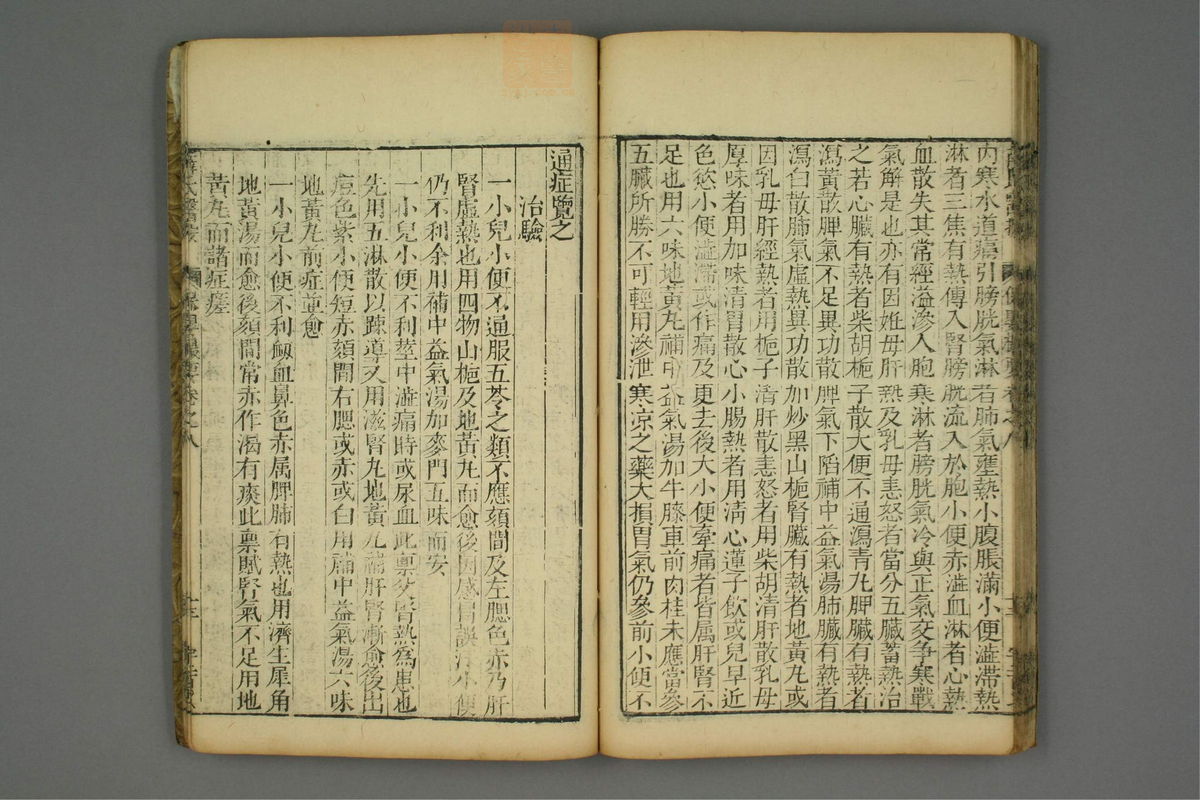 內寒水道癃引膀胱氣淋者肺氣壅熱小腹脹滿小便澁滯熱
淋者三焦有熱傳入腎膀胱流入於胞小便赤澁血淋者心熱
血散失其常經溢滲入胞寒淋者膀胱氣冷與正氣交爭寒戰
氣解是也亦有因姙母肝熱及乳母恚怒者當分五臟蓄熱治
之若心臟有熱者柴胡梔子散大便不通瀉青丸脾臟有熱者
瀉黃散脾氣不足異功散脾氣下陷補中益氣湯肺臟有熱者
瀉白散肺氣虛熱異功散加炒黑山梔腎臟有熱者地黃丸或
因乳母肝經熱者用梔子清肝散恚怒者用柴胡清肝散乳母
厚味者用加味清胃散心小腸熱者用清心蓮子飲或兒早近
色慾小便澁滯或作痛及更去後大小便牽痛者皆属肝腎不
足也用六味地黃丸補中益氣湯加牛膝車前肉桂未應當參
五臟所勝不可輕用滲泄寒凉之藥大損胃氣仍參前小便不
通症覽之
治驗
一小兒小便不通服五苓之類不應頦間及左腮色赤乃肝
腎虛熱也用四物山梔及地黃丸而愈後因感冒誤汗小便
仍不利余用補中益氣湯加麥門五味而安
一小兒小便不利莖中澁痛時或尿血此禀父腎熱為患也
先用五淋散以疎導又用滋腎丸地黃丸補肝腎漸愈後出
痘色紫小便短赤頦間右腮或赤或白用補中益氣湯六味
地黃丸前症並愈
一小兒小便不利衂血鼻色赤属脾肺有熱也用濟生犀角
地黃湯而愈後頦間常赤作渴有痰此禀賦腎氣不足用地
黃丸而諸症瘥